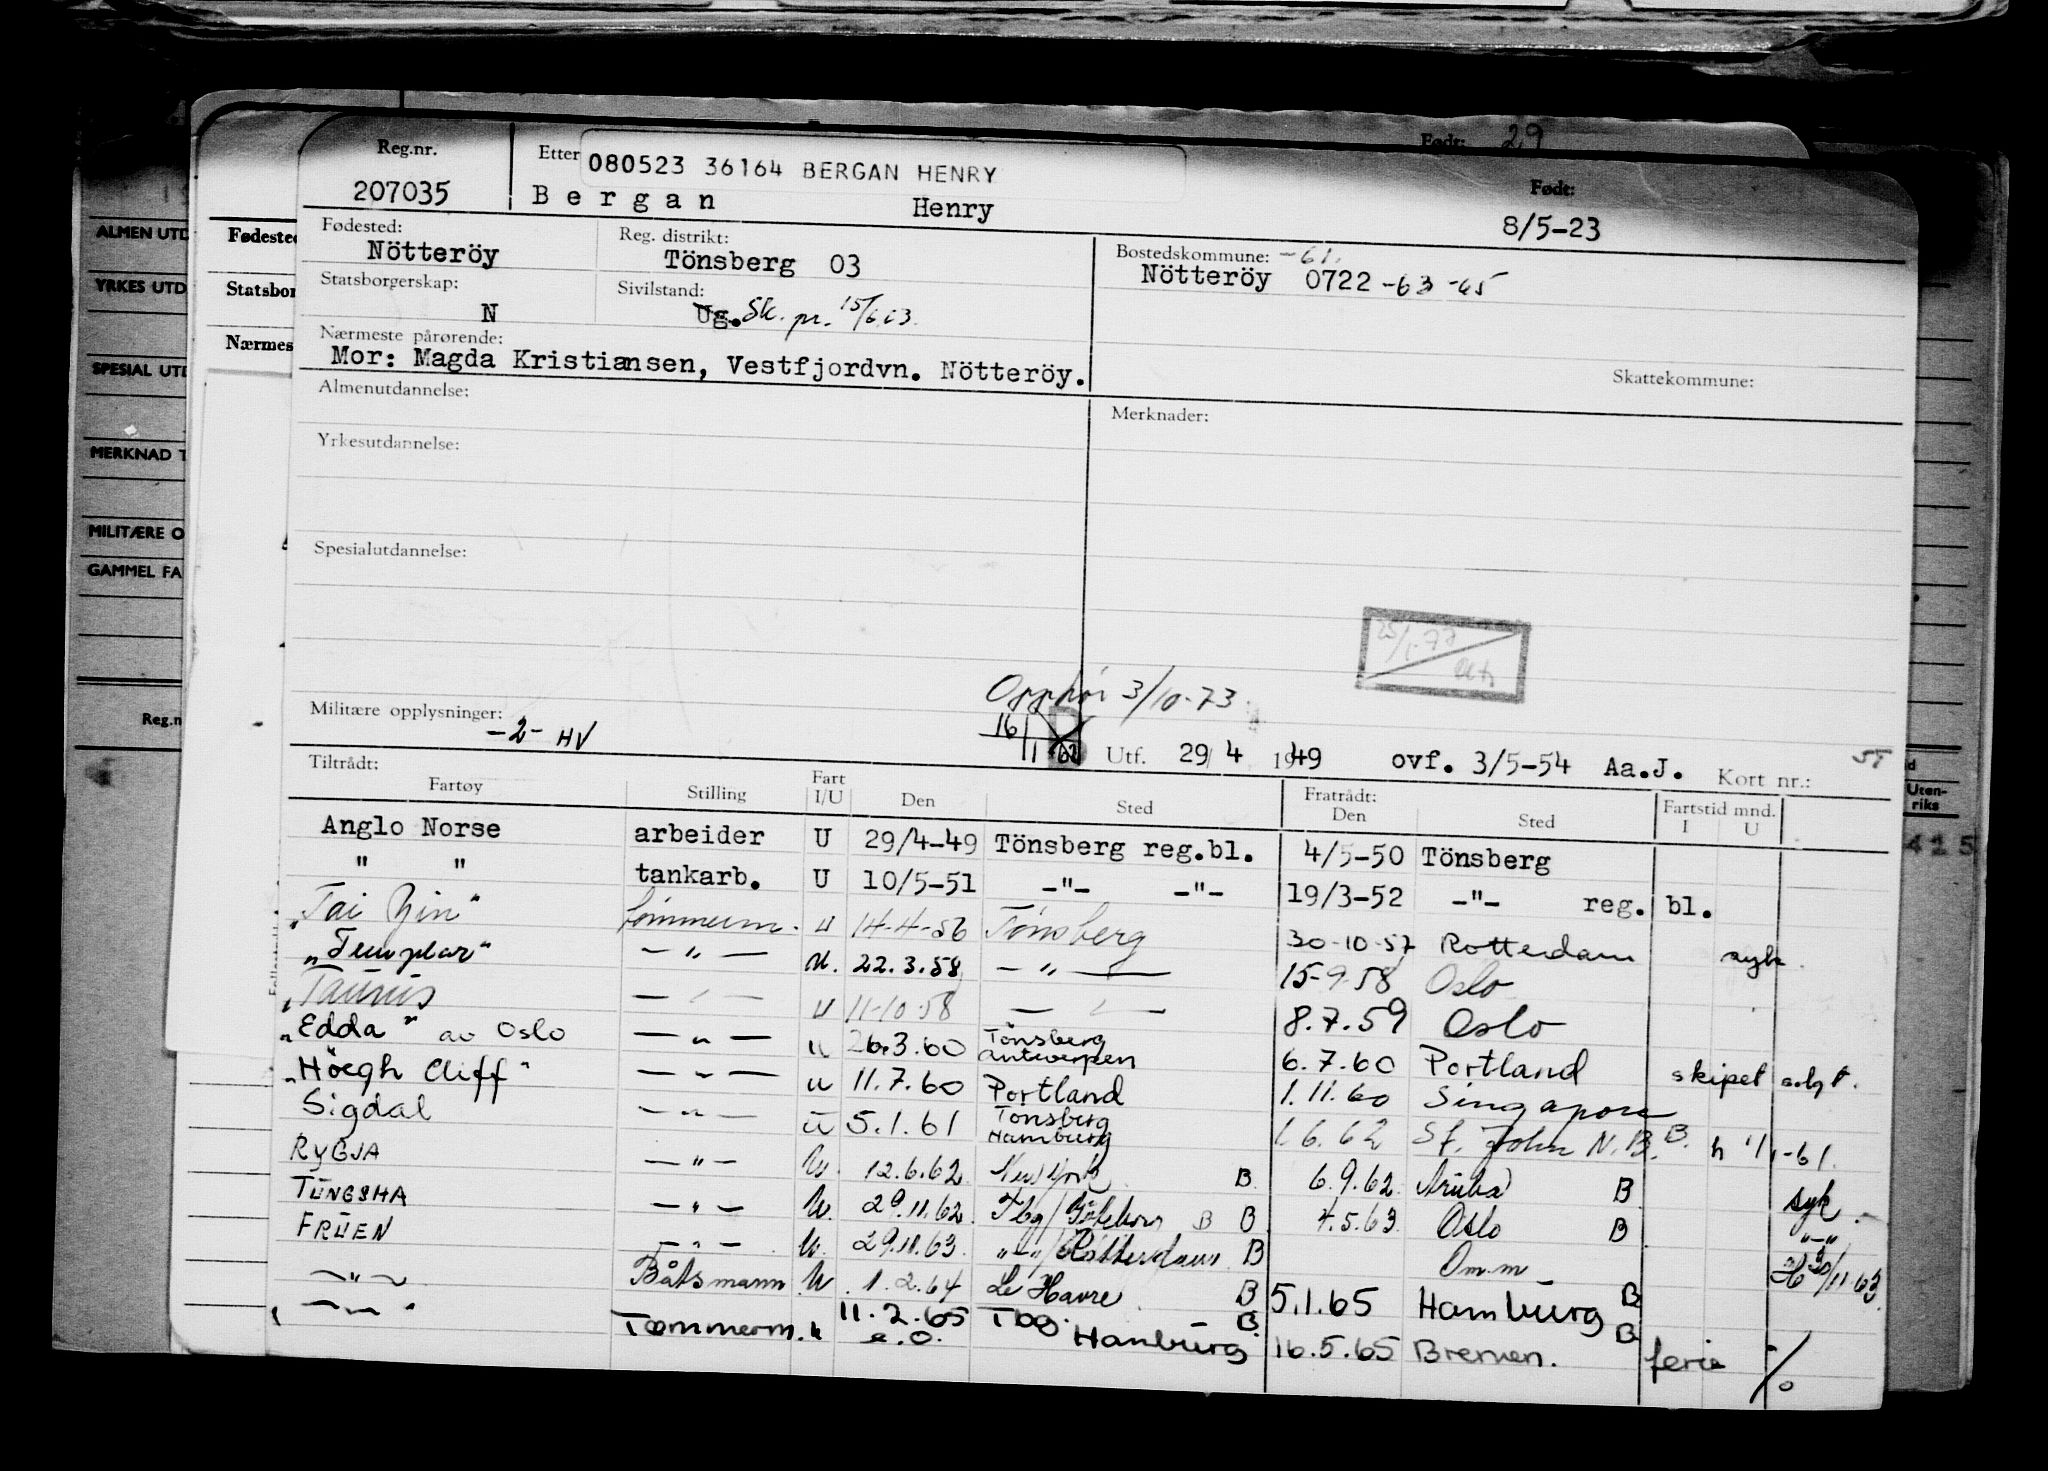 Født: 29
Reg.nr. Etter 080523 36164 BERGAN HENRY Født:
207035 Bergan Henry 8/5-23
Fødested: Reg. distrikt: Bostedskommune: -61.
Nötteröy Tönsberg 03 Nötteröy 0722 -63 -65
Statsborgerskap: Sivilstand:
N Ug. Sk. pr. 15/6.63.
Nærmeste pårørende:
Mor: Magda Kristiansen, Vestfjordvn. Nötteröy.
Skattekommune:
Almenutdannelse: Merknader:
Yrkesutdannelse:
Spesialutdannelse:
25/1-77
Opphør 3/10-73.
Militære opplysninger: -2- HV
16/1 Utf. 29/4 1949 ovf. 3/5-54 Aa.J. Kort nr.:
Tiltrådt: Fratrådt: Fartstid mnd.
Fartøy Stilling Fart I/U Den Sted Den Sted I U
Anglo Norse arbeider U 29/4-49 Tönsberg reg.bl. 4/5-50 Tönsberg
" " tankarb. U 10/5-51 -"- -"- 19/3-52 -"- reg. bl.
"Tai Yin" tömmerm. U 14-4-56 Tönsberg 30-10-57 Rotterdam syk.
"Templar" -"- U. 22.3.58 -"- 15-9-58 Oslo
"Taurus -"- U 11-10-58 -"- 8.7.59 Oslo
"Edda" av Oslo -"- u 26.3.60 Tönsberg antwerpen 6.7.60 Portland skipet solgt.
"Höegh Cliff" -"- u 11.7.60 Portland 1.11.60 Singapore
Sigdal -"- u 5.1.61 Tönsberg Hamburg 1.6.62 St. John N.B. B. h 1/1-61.
RYGJA -"- U. 12.6.62 New York B 6.9.62 Aruba B syk.
TUNGSHA -"- U. 29.11.62. Tbg/Göteborg B B 4.5.63 Oslo B -"-
FRUEN -"- U. 29.11.63. -"-/Rotterdam B Om.m H 30/11 63.
-"- Båtsmann U. 1.2.64 Le Havre B 5.1.65 Hamburg B
-"- Tømmerm. u 11.2.65 e.o. Tbg. Hamburg B 16.5.65 Bremen. B ferie
ALMEN UTD
YRKES UTD
SPESIAL UTD
MERKNAD T
MILITÆRE O
GAMMEL FA
Reg.n
Fødested
Statsbor
Nærmes
Uten-
riks
415